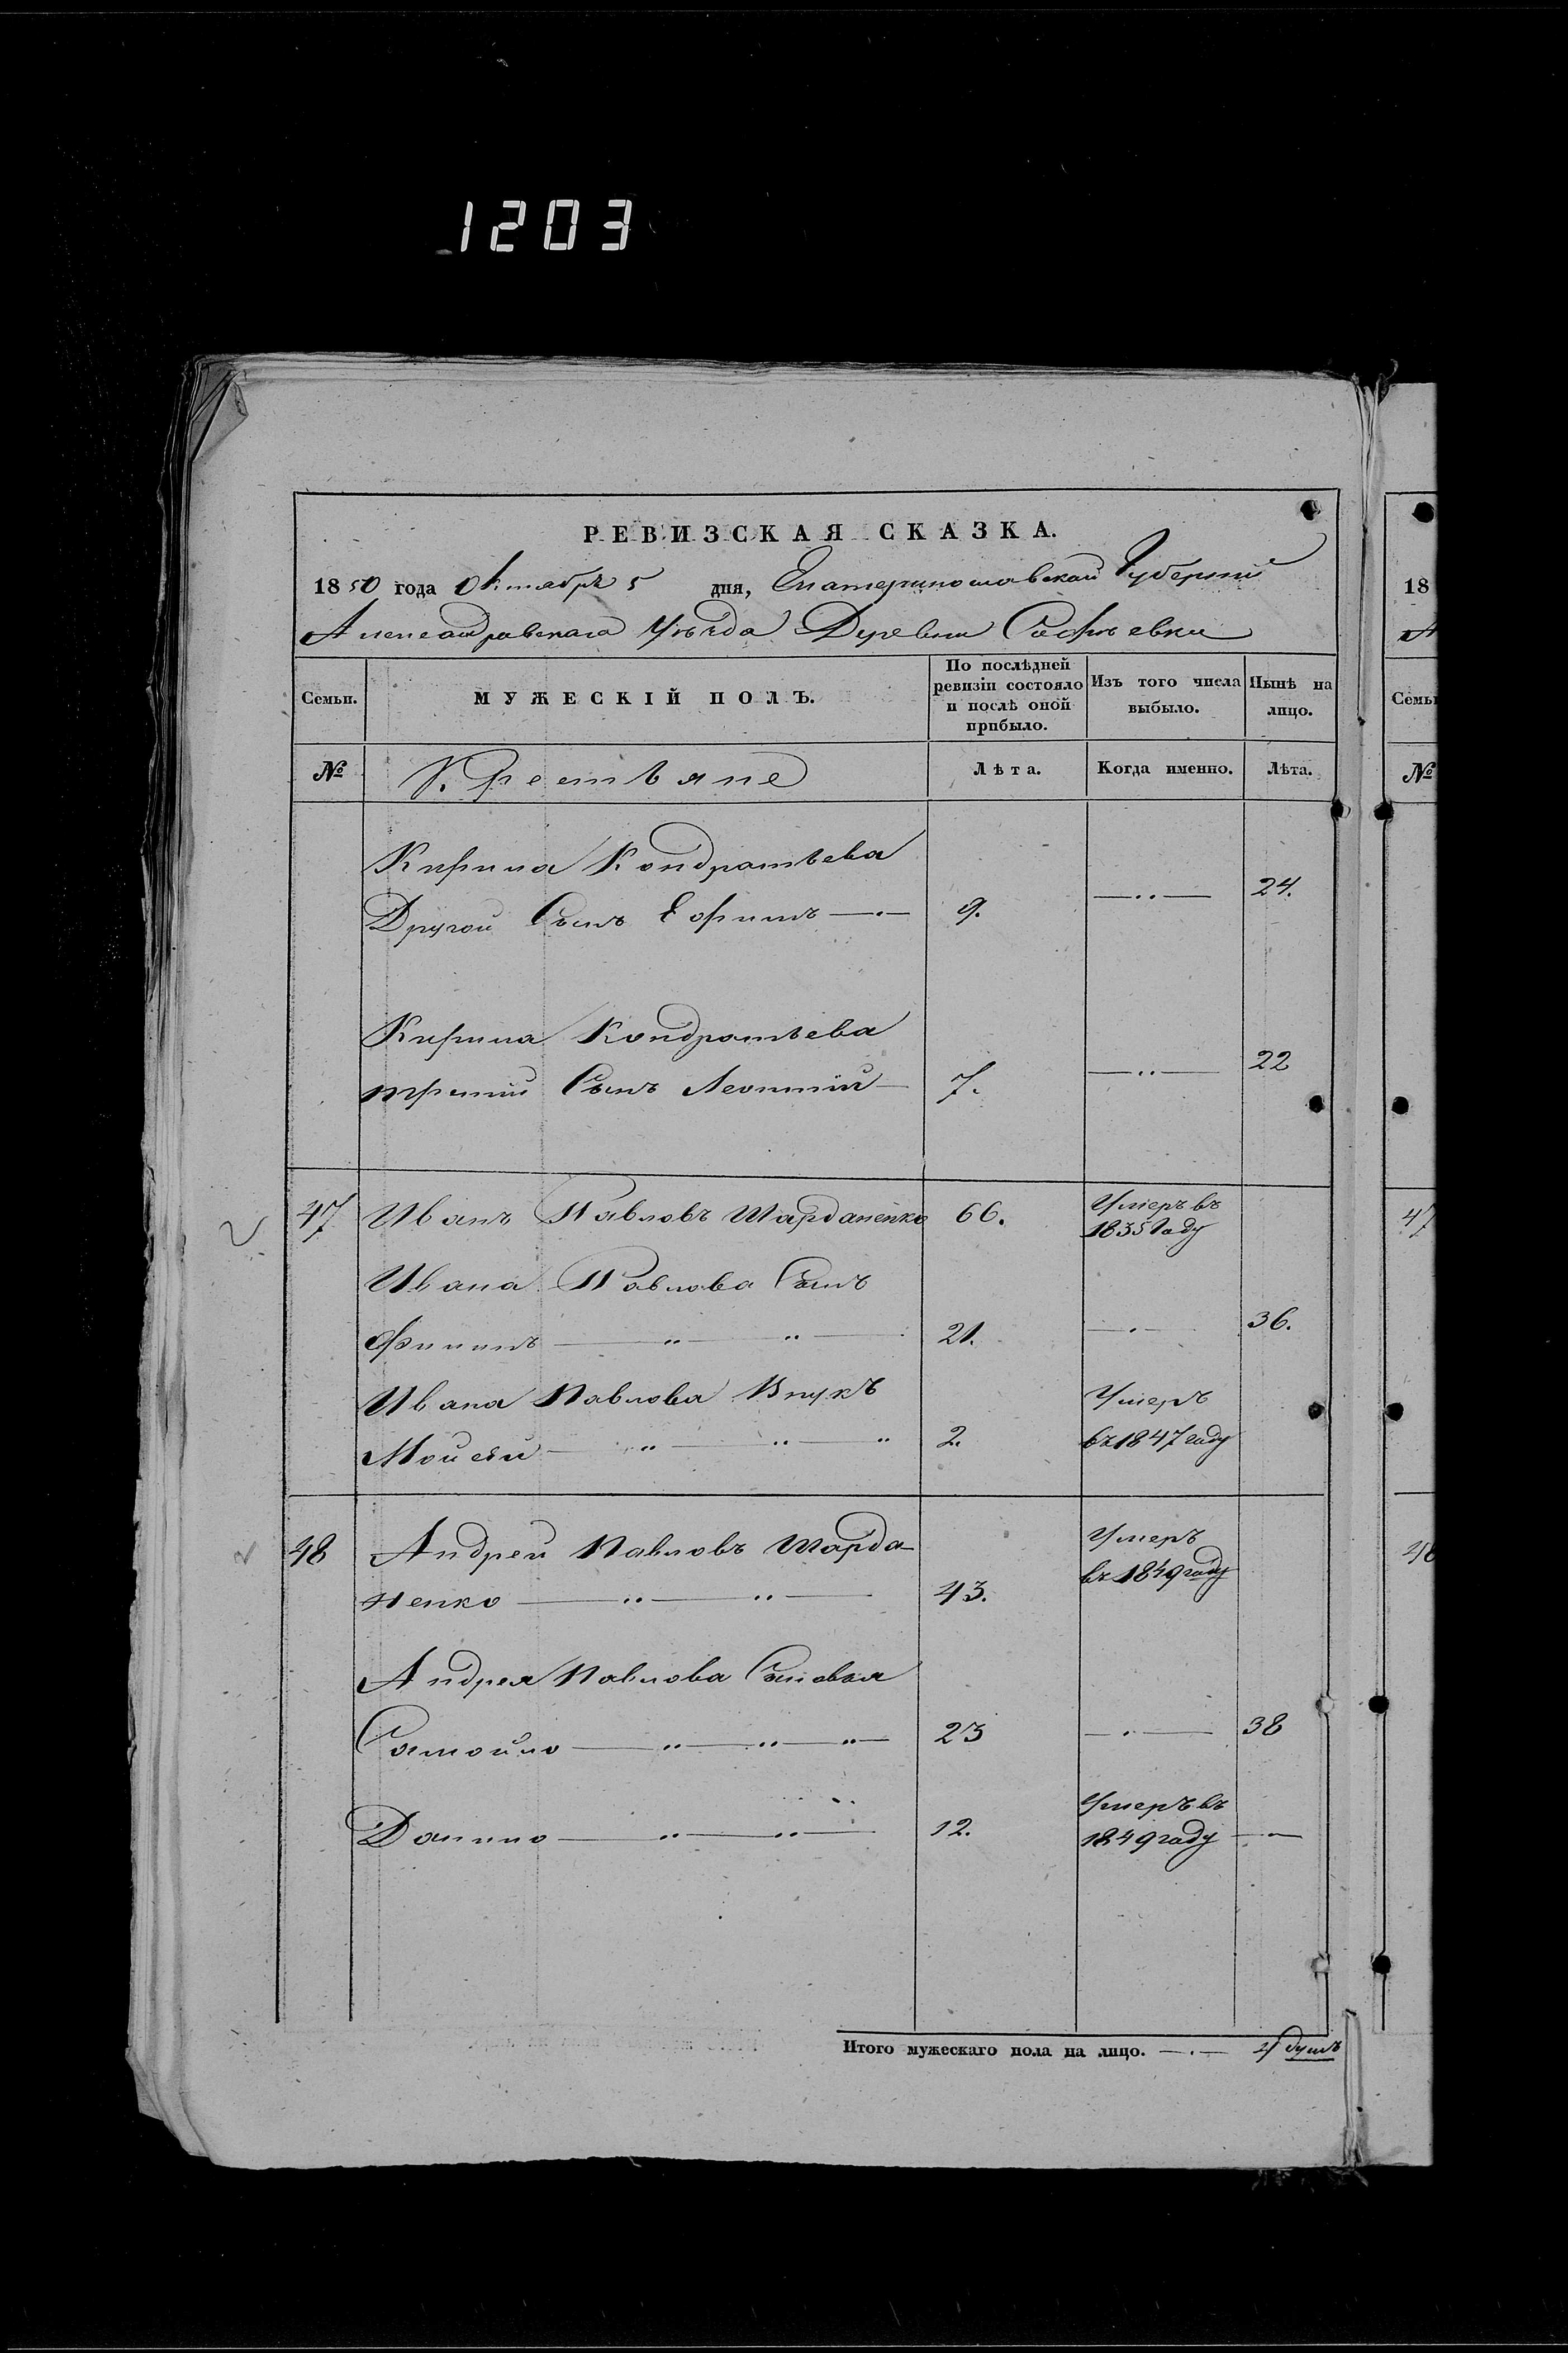 1203
РЕВИЗСКАЯ СКАЗКА.
1850 года Октября 5 дня, Екатеринославской Губернии
Александровскаго Уѣзда Деревни Софіевки
Семьи. МУЖЕСКІЙ ПОЛЪ. По послѣдней ревизіи состояло и послѣ оной прибыло. Изъ того числа выбыло. Нынѣ на лицо.
№ Крестьяне Лѣта. Когда именно. Лѣта.
Кирила Кондратьева
Другой Сынъ Ефимъ 9. 24.
Кирила Кондратьева
третій Сынъ Леонтій 7. 22
47 Иванъ Павловъ Шарданенко 66. Умеръ въ
1835 Году
Ивана Павлова Сынъ
Филипъ 21. 36.
Ивана Павлова Внукъ Умеръ
Мойсей 2. въ 1847 году
48 Андрей Павловъ Шарда- Умеръ
ненко 43. въ 1849 году
Андрея Павлова Сыновья
Самойло 23 38
Данило 12. Умеръ въ
1849 году
Итого мужескаго пола на лицо. 4 душъ
18
А
Семьи
№
47
48